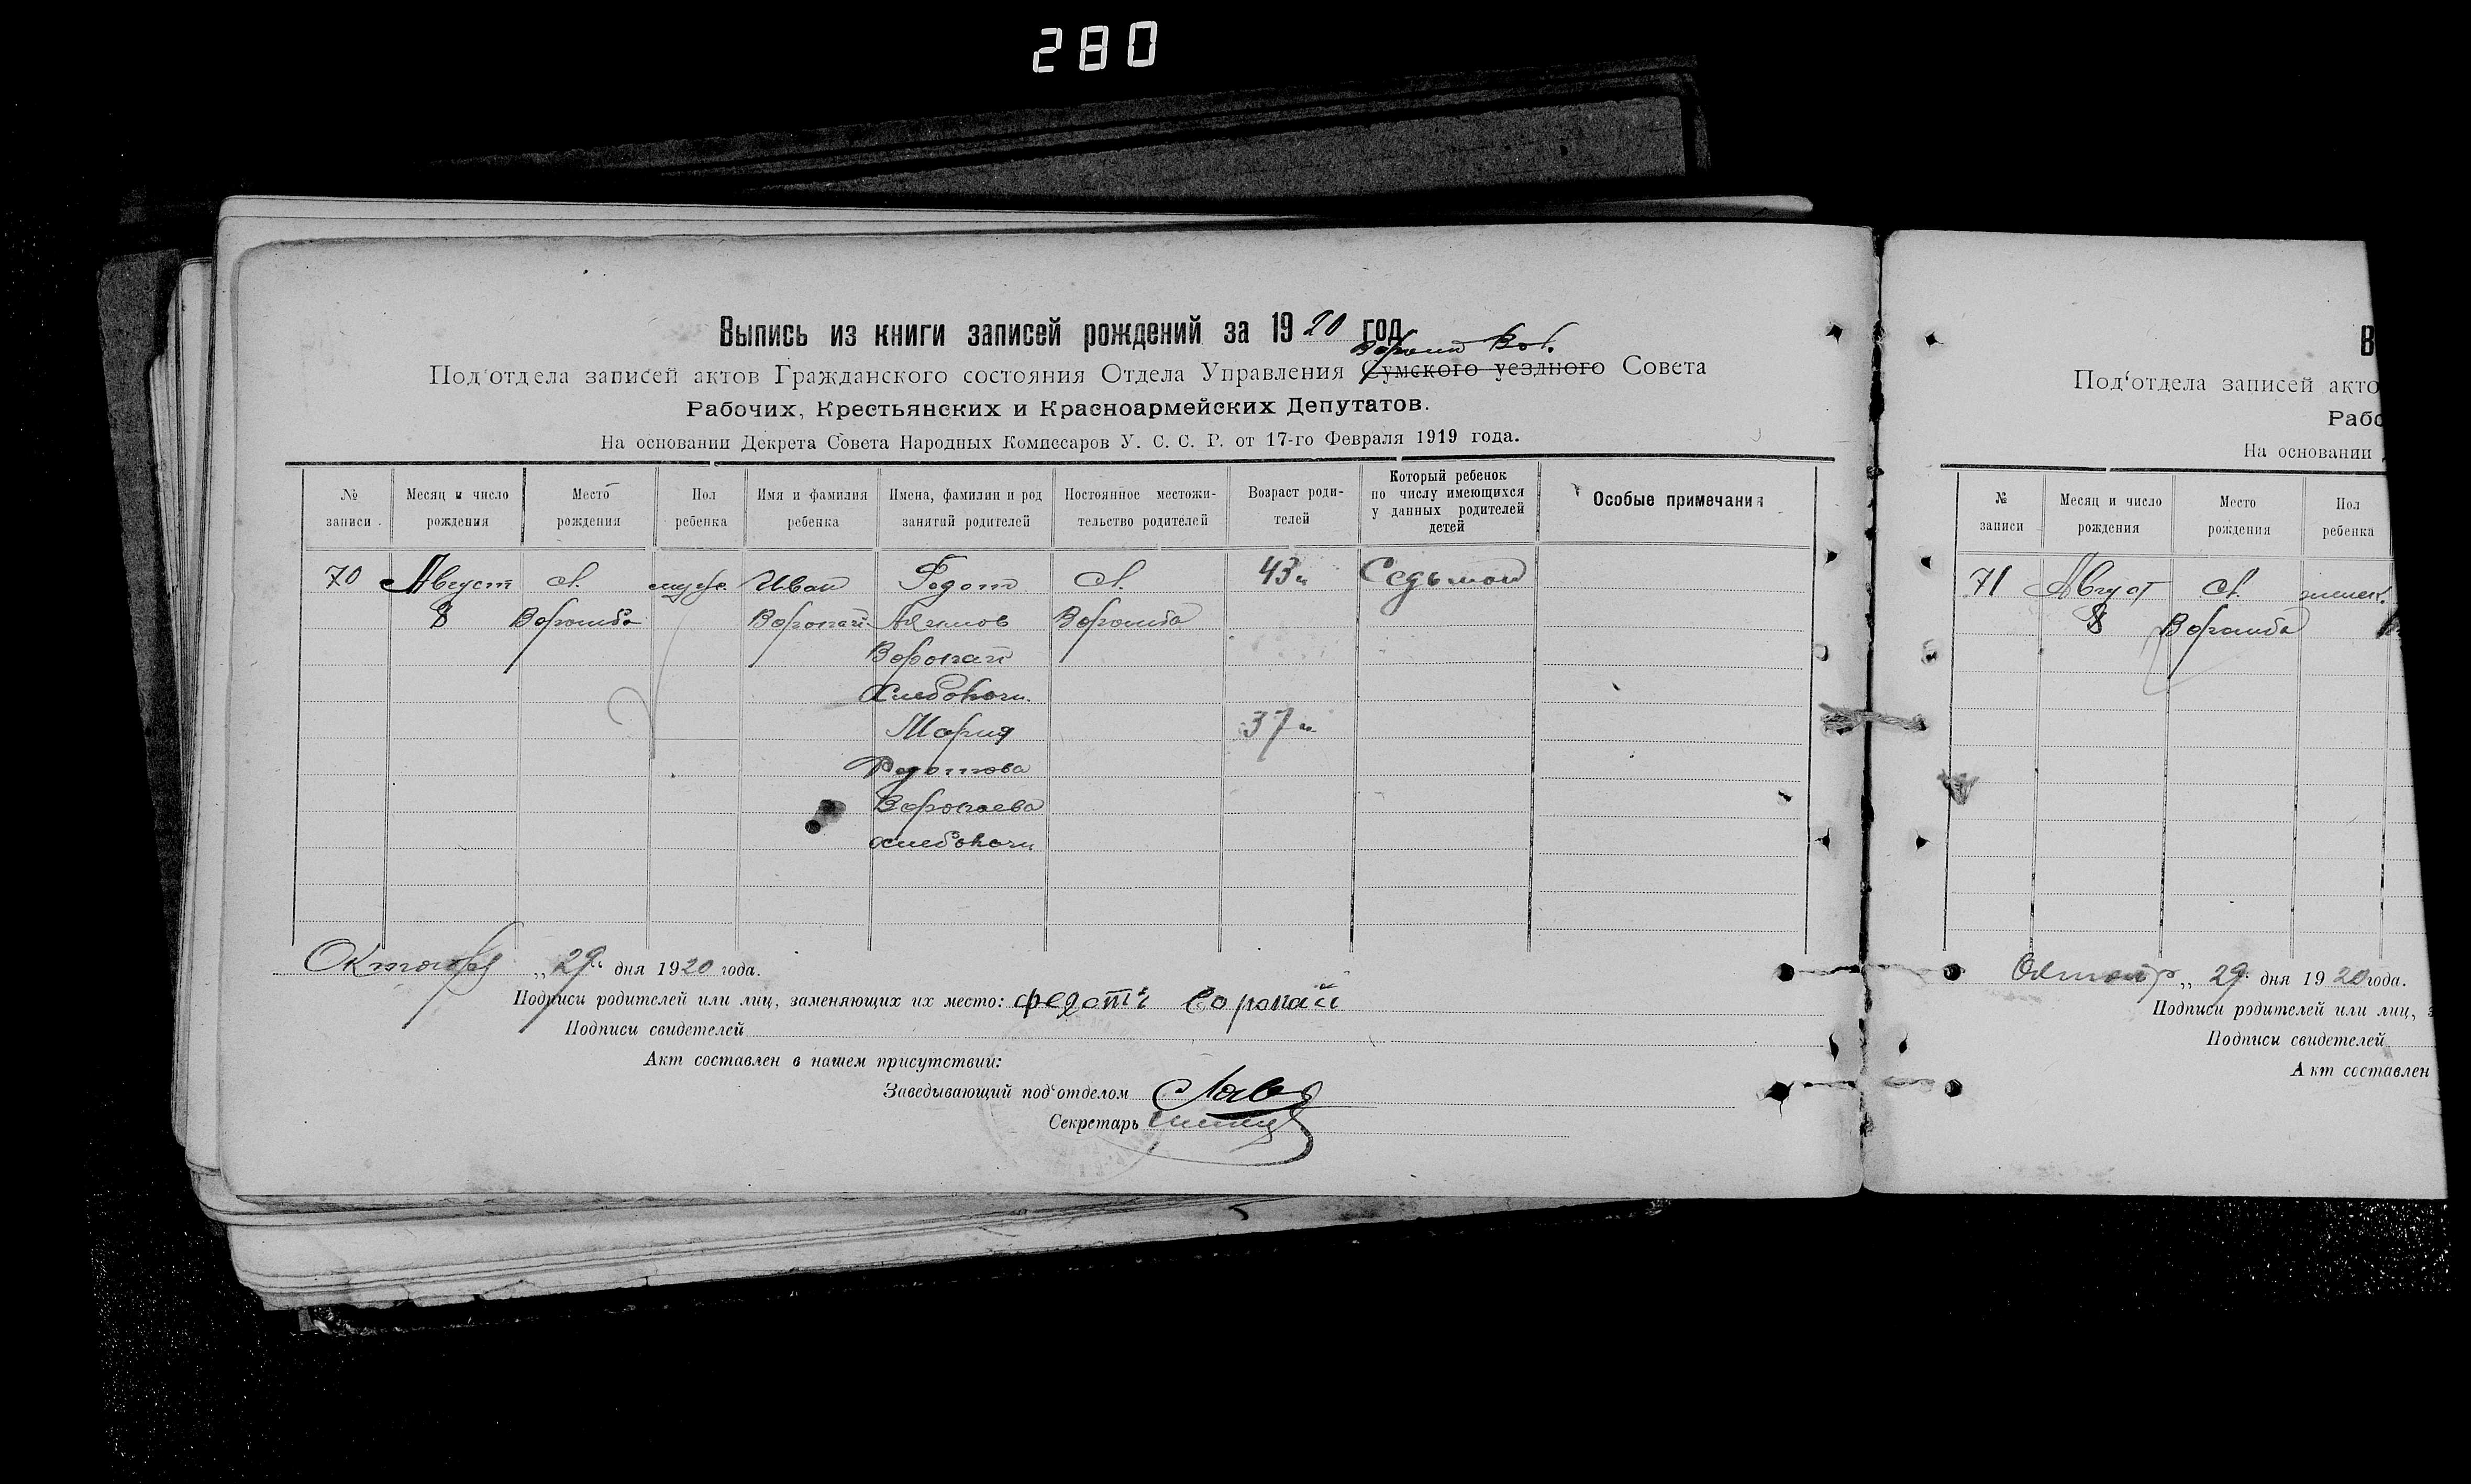 280
Выпись из книги записей рождений за 1920 год
Ворожб Вол.
Под'отдела записей актов Гражданского состояния Отдела Управления Сумского уездного Совета
Рабочих, Крестьянских и Красноармейских Депутатов.
На основании Декрета Совета Народных Комиссаров У. С. С. Р. от 17-го Февраля 1919 года.
№ записи
Месяц и число рождения
Место рождения
Пол ребенка
Имя и фамилия ребенка
Имена, фамилии и род занятий родителей
Постоянное местожительство родителей
Возраст родителей
Который ребенок по числу имеющихся у данных родителей детей
Особые примечания
70 Август с. муж. Иван Федот с. 43 Седьмой
8 Ворожба Воропай Акимов Ворожба
Воропай
Хлебопаш.
Мария 37
Федотова
Воропаева
хлебопаш
Октября „29" дня 1920 года.
Подписи родителей или лиц, заменяющих их место: федотъ воропай
Подписи свидетелей
Акт составлен в нашем присутствии:
Заведывающий под'отделом
Секретарь
В
Под'отдела записей акто
Рабо
На основании
№ записи
Месяц и число рождения
Место рождения
Пол ребенка
71 Август с. женск.
8 Ворожба
Октябр „29" дня 1920 года.
Подписи родителей или лиц, з
Подписи свидетелей
Акт составлен